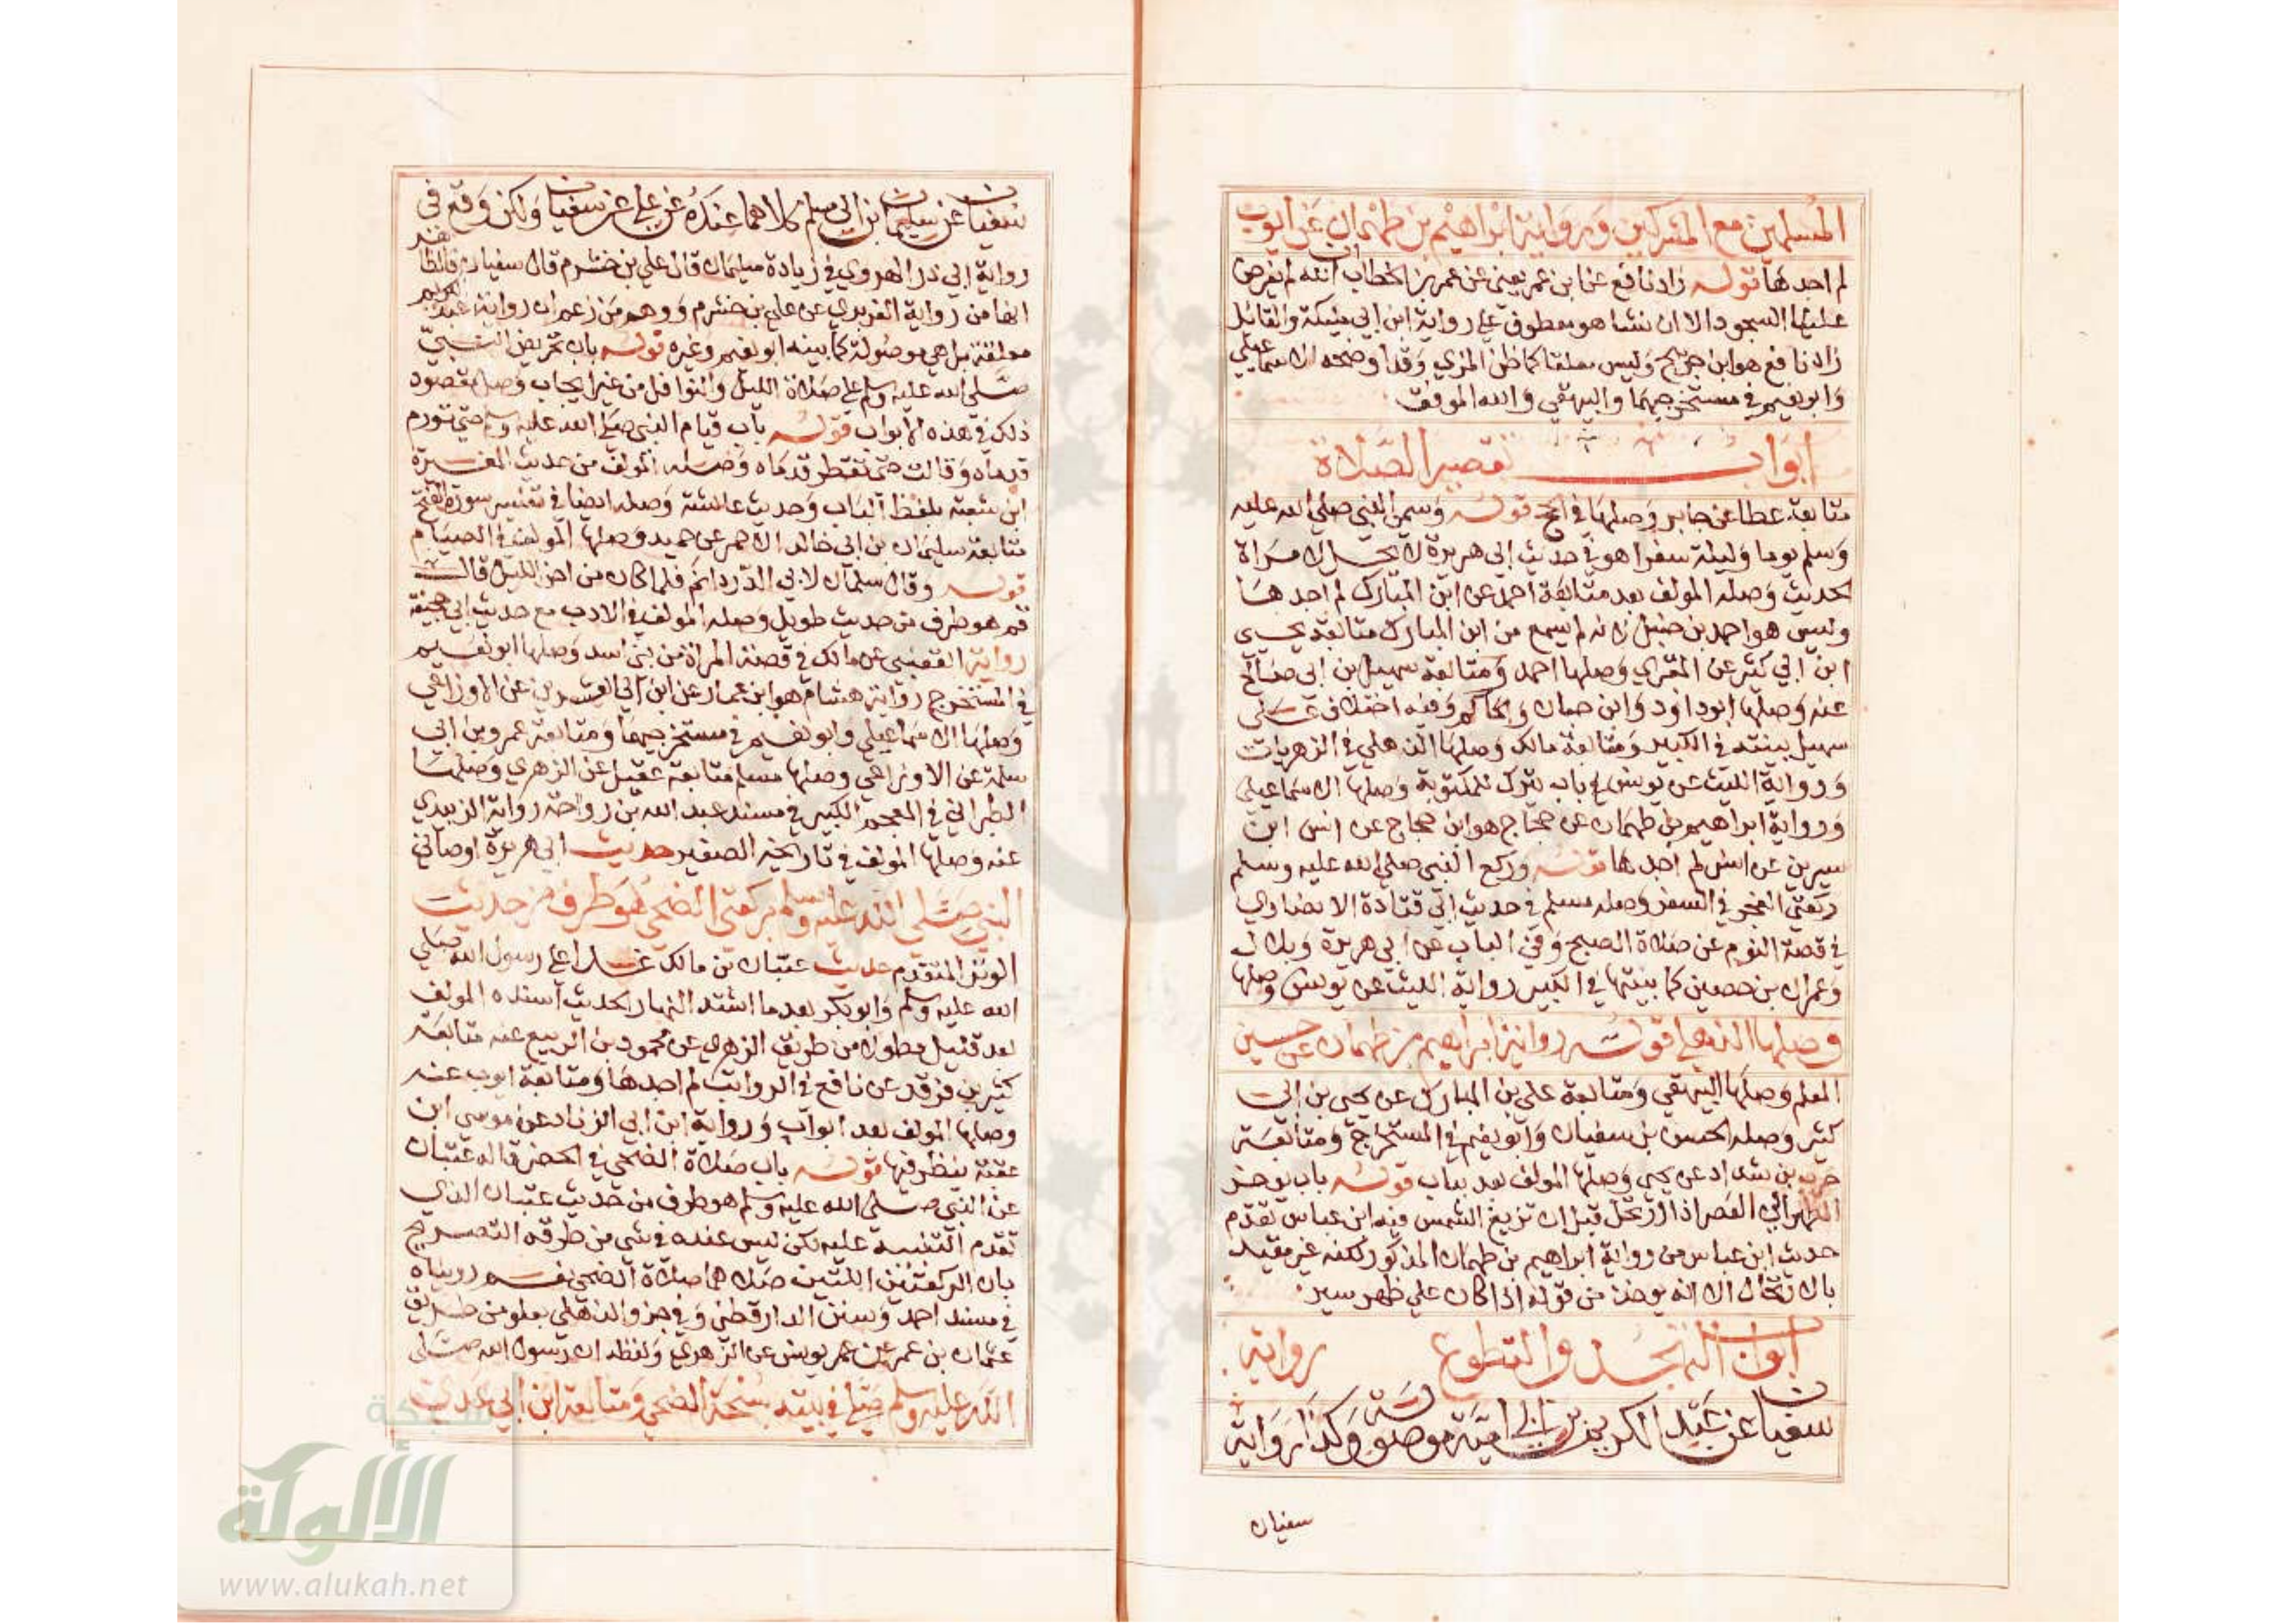 المسلمين مع المشركين ورواية ابراهيم بن طهمان عن ايوب
لم اجدها قوله زاد نافع عن ابن عمر يعني عن عمر بن الخطاب ان الله لم يفرض
علينا السجود الا ان نشا هو معطوف على رواية ابن ابي مليكة والقائل
زاد نافع هو ابن جريج وليس معلقا كما ظن المزي وقد اوضحه الاسماعيلي
وابو نعيم في مستخرجيهما والبيهقي والله الموفق
ابواب تقصير الصلاة
متابعة عطا عن جابر وصلها في الحج قوله وسمى النبي صلى الله عليه
وسلم يوما وليلة سفرا هو في حديث ابي هريرة لا يحل لامراة
الحديث وصله المولف بعد متابعة احمد عن ابن المبارك لم اجدها
وليس هو احمد بن حنبل لانه لم يسمع من ابن المبارك متابعة يحيى
ابن ابي كثير عن المقبري وصلها احمد ومتابعة سهيل بن ابي صالح
عنه وصلها ابو داود وابن حبان والحاكم وفيه اختلاف على
سهيل بينته في الكبير ومتابعة مالك وصلها الذهلي في الزهريات
ورواية الليث عن يونس في باب ينزل للمكتوبة وصلها الاسماعيلي
ورواية ابراهيم بن طهمان عن حجاج هو ابن حجاج عن انس ابن
سيرين عن انس لم اجدها قوله وركع النبي صلى الله عليه وسلم
ركعتي الفجر في السفر وصله مسلم في حديث ابي قتادة الانصاري
في قصة النوم عن صلاة الصبح وفي الباب عن ابي هريرة وبلال
وعمران بن حصين كما بينتها في الكبير رواية الليث عن يونس وصلها
وصلها الذهلي قوله رواية ابراهيم بن طهمان عن حسين
المعلم وصلها البيهقي ومتابعة علي بن المبارك عن يحيى بن ابي
كثير وصله الحسن بن سفيان وابو نعيم في المستخرج ومتابعة
حرب بن شداد عن يحيى وصلها المولف بعد بباب قوله باب يوخر
الظهر الي العصر اذا ارتحل قبل ان تزيغ الشمس فيه ابن عباس تقدم
حديث ابن عباس من رواية ابراهيم بن طهمان المذكور لكنه غير مقيد
بالارتحال الا انه يوخذ من قوله اذا كان علي ظهر سير
ابواب التهجد والتطوع رواية
سفيان عن عبد الكريم بن ابي امية موصولة وكذا رواية
سفيان
سفيان عن سليمان بن ابي مسلم كلاهما عنده عن علي عن سفيان ولكن وقع في
رواية ابي ذر الهروي في زيادة سليمان قال علي بن خشرم قال سفيان فالظاهر
انها من رواية الفربري عن علي بن خشرم ووهم من زعم ان رواية عبد الكريم
معلقة بل هي موصولة كما بينه ابو نعيم وغيره قوله باب تحريض النبي
صلى الله عليه وسلم على صلاة الليل والنوافل من غير ايجاب وصل مقصود
ذلك في هذه الابواب قوله باب قيام النبي صلى الله عليه وسلم حتى تورم
قدماه وقالت حتى تفطر قدماه وصله المولف من حديث المغيرة
ابن شعبة بلفظ الباب وحديث عائشة وصله ايضا في تفسير سورة الفتح
متابعة سليمان بن ابي خالد الاحمر عن حميد وصلها المولف في الصيام
قوله وقال سلمان لابي الدرداء نم فلما كان من اخر الليل قال
قم هو طرف من حديث طويل وصله المولف في الادب مع حديث ابي جحيفة
رواية القعنبي عن مالك في قصة المراة من بني اسد وصلها ابو نعيم
في المستخرج رواية هشام هو ابن عمار عن ابن ابي العشرين عن الاوزاعي
وصلها الاسماعيلي وابو نعيم في مستخرجيهما ومتابعة عمرو بن ابي
سلمة عن الاوزاعي وصلها مسلم متابعة عقيل عن الزهري وصلها
الطبراني في المعجم الكبير في مسند عبد الله بن رواحة رواية الزبيدي
عنه وصلها المولف في تاريخه الصغير حديث ابي هريرة اوصاني
النبي صلى الله عليه وسلم بركعتي الضحى هو طرف من حديث
الوتر المتقدم حديث عتبان بن مالك غدا علي رسول الله صلى
الله عليه وسلم وابو بكر بعد ما اشتد النهار الحديث اسنده المولف
بعد قليل مطولا من طريق الزهري عن محمود بن الربيع عنه متابعة
كثير بن فرقد عن نافع في الرواتب لم اجدها ومتابعة ايوب عنه
وصلها المولف بعد ابواب ورواية ابن ابي الزناد عن موسى ابن
عقبة ينظر فيها قوله باب صلاة الضحى في الحضر قاله عتبان
عن النبي صلى الله عليه وسلم هو طرف من حديث عتبان الذي
تقدم التنبيه عليه لكن ليس عنده في شي من طرقه التصريح
بان الركعتين اللتين صلاهما صلاة الضحى نعم رويناه
في مسند احمد وسنن الدارقطني وفي جزء الذهلي بعلو من طريق
عثمان بن عمر عن يونس عن الزهري ولفظه ان رسول الله صلى
الله عليه وسلم صلى في بيته سبحة الضحى ومتابعة ابن ابي عدي
شبكة
الألوكة
www.alukah.net